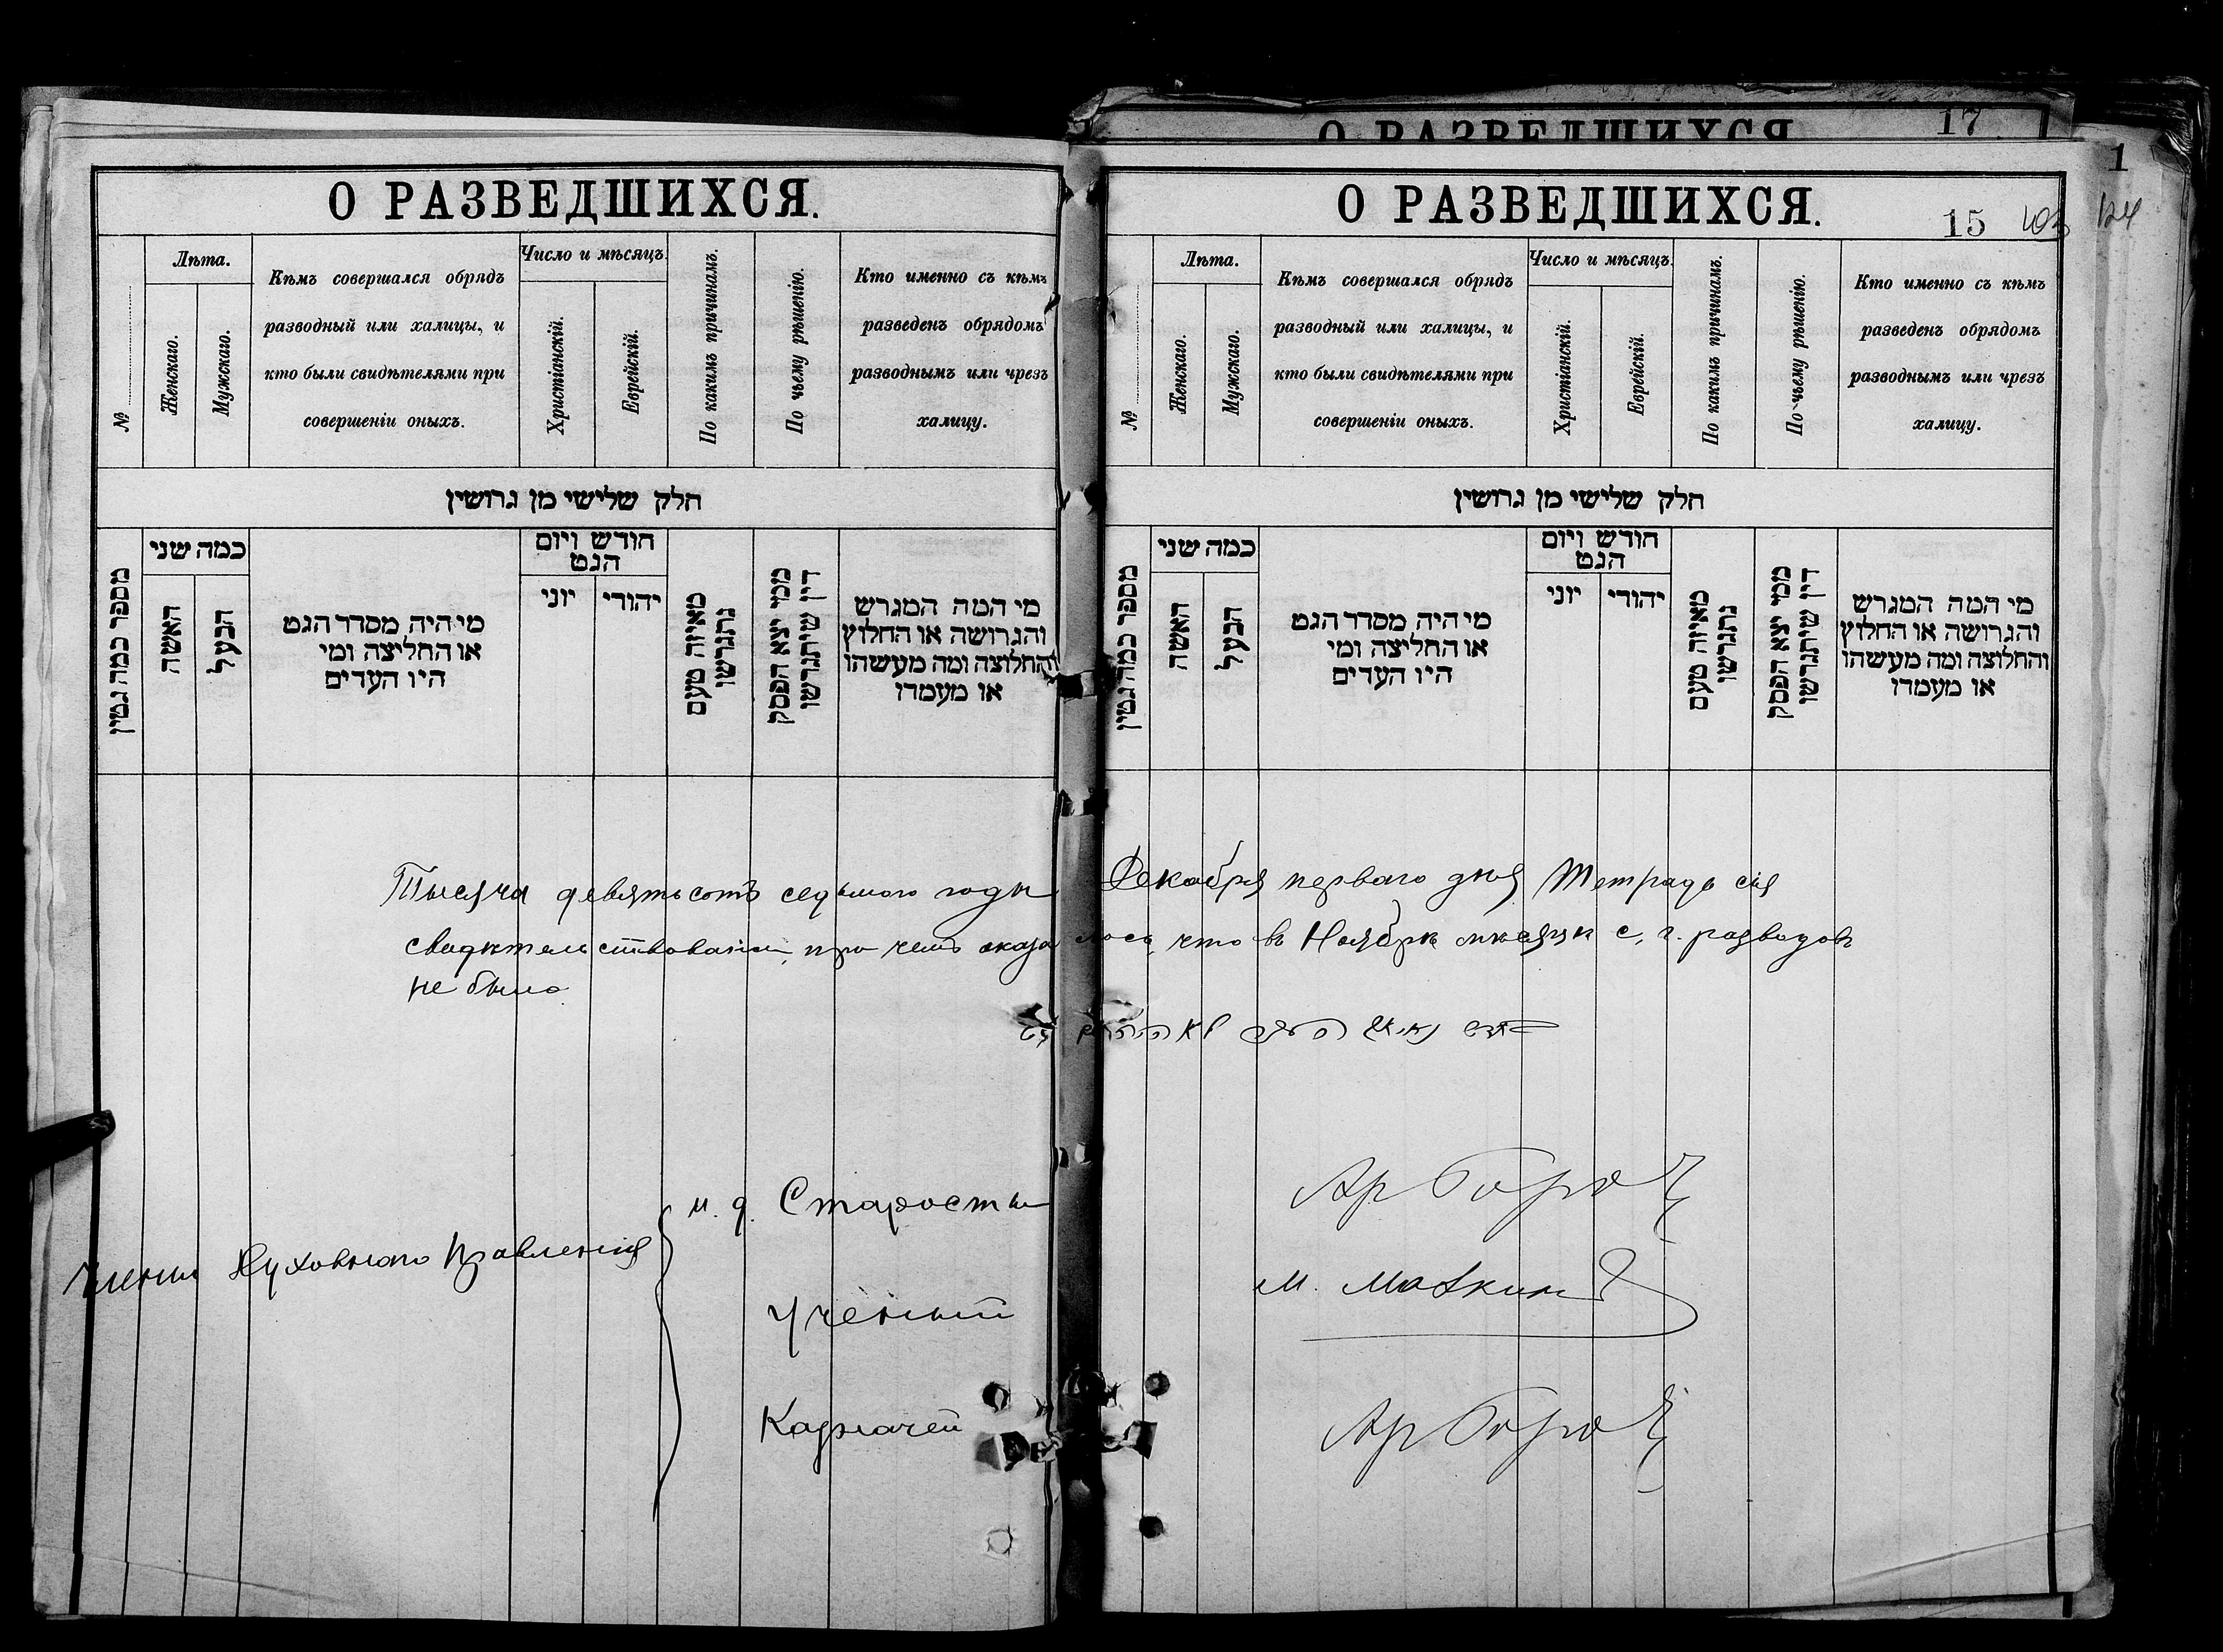 О РАЗВЕДШИХСЯ
17
1
О РАЗВЕДШИХСЯ.
№
Лѣта.
Женскаго.
Мужскаго.
Кѣмъ совершался обрядъ
разводный или халицы, и
кто были свидѣтелями при
совершеніи оныхъ.
Число и мѣсяцъ.
Христіанскій.
Еврейскій.
По какимъ причинамъ.
По чьему рѣшенію.
Кто именно съ кѣмъ
разведенъ обрядомъ
разводнымъ или чрезъ
халицу.
חלק שלישי מן גרושין
מספר כמה גטין
כמה שני
האשה
הבעל
מי היה מסדר הגט
או החליצה ומי
היו העדים
חודש ויום
הגט
יוני
יהודי
מאיזה טעם
נתגרשו
ממי יצא הפסק
דין שיתגרשו
מי המה המגרש
והגרושה או החלוץ
והחלוצה ומה מעשהו
או מעמדו
О РАЗВЕДШИХСЯ.
15
124
№
Лѣта.
Женскаго.
Мужскаго.
Кѣмъ совершался обрядъ
разводный или халицы, и
кто были свидѣтелями при
совершеніи оныхъ.
Число и мѣсяцъ.
Христіанскій.
Еврейскій.
По какимъ причинамъ.
По чьему рѣшенію.
Кто именно съ кѣмъ
разведенъ обрядомъ
разводнымъ или чрезъ
халицу.
חלק שלישי מן גרושין
מספר כמה גטין
כמה שני
האשה
הבעל
מי היה מסדר הגט
או החליצה ומי
היו העדים
חודש ויום
הגט
יוני
יהודי
מאיזה טעם
נתגרשו
ממי יצא הפסק
דין שיתגרשו
מי המה המגרש
והגרושה או החלוץ
והחלוצה ומה מעשהו
או מעמדו
Тысяча девятьсотъ седьмого года Декабря перваго дня Тетрадь сія
свидѣтельствована, при чемъ оказалось, что въ Ноябрѣ мѣсяцѣ с. г. разводовъ
не было.
Члены Духовнаго Правленія
и. д. Старосты
Ученый
М.
Казначей